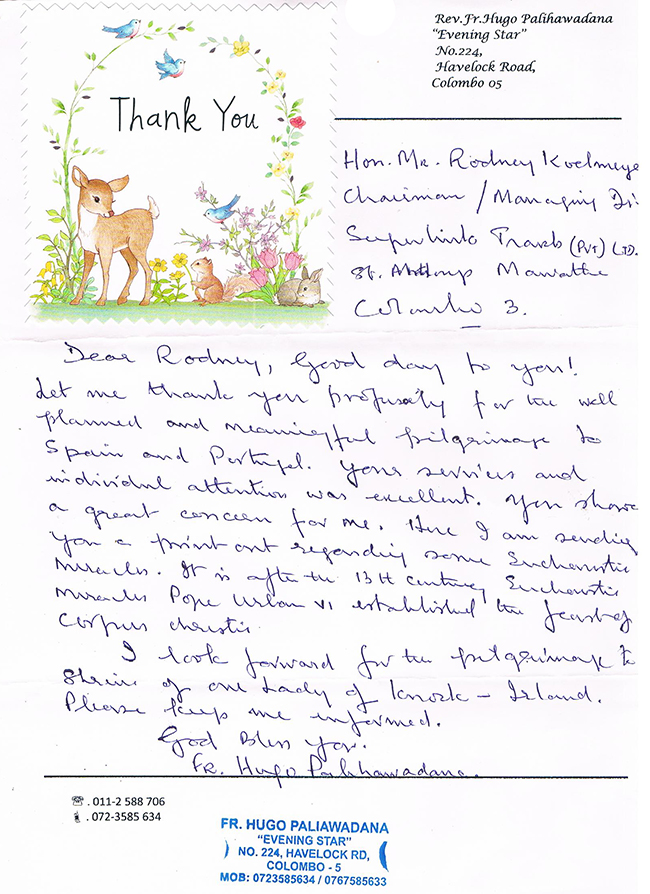 Thank You
Rev.Fr.Hugo Palihawadana
"Evening Star"
No.224,
Havelock Road,
Colombo 05
Hon. Mr. Rodney Koelmeye
Chairman / Managing Di
Superlink Travels (PVT) LTD.
St. Mawatha
Colombo 3.
Dear Rodney, Good day to you!
Let me thank you profusely for the well
planned and meaningful pilgrimage to
Spain and Portugal. Your services and
individual attention was excellent. You show
a great concern for me. Here I am sending
you a print out regarding some Eucharistic
Miracles. It is after the 13th century Eucharistic
Miracles Pope Urban VI established the feast of
Corpus Christi
I look forward for the pilgrimage to
Shrine of our Lady of Knock – Ireland.
Please keep me informed.
God Bless You.
Fr. Hugo Palihawadana.
☎ . 011-2 588 706
. 072-3585 634
FR. HUGO PALIAWADANA
"EVENING STAR"
NO. 224, HAVELOCK RD,
COLOMBO - 5
MOB: 0723585634 / 0767585633